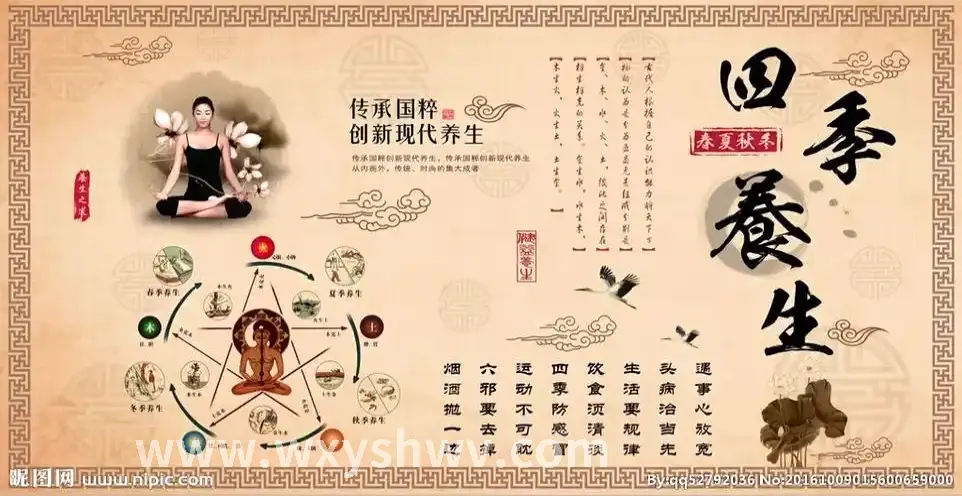 四季
養生
春夏秋冬
古代人根据自己的认识能力将天下
的认为是分为五类元素组成分别是
、木、水、火、土，彼此之间存在
相生相克的关系。金生水，水生木，
木生火，火生土，土生金。
传承国粹
创新现代养生
传承国粹创新现代养生，传承国粹创新现代养生
从内而外，传统、时尚的集大成者
養生之道
春季养生
夏季养生
木
火
土
冬季养生
秋季养生
遇事心放宽
头病治当先
生活要规律
饮食须清淡
四季防感冒
运动不可耽
六邪要去掉
烟酒抛一边
www.wxyshwv.com
昵图网 www.nipic.com
By:qq52792036 No:20161009015600659000